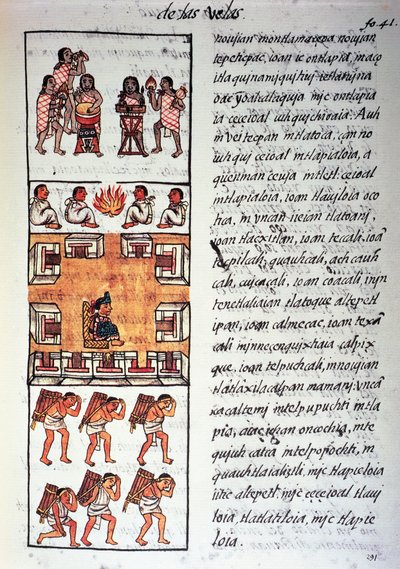 de las Velas.
fo. 41.
noujian montlamaçeoa noujian
tepehicpac, ioan ic ontlapia, in aço
itla quinamiquiz
oac yoalalaquja, mjc ontlapia
ia ceceioal iuh quichioaia. Auh
in vei tecpan mtlatoca, çan no
iuh qui ceioal mtlapialoia, a
queman ceuja mtletl. ceceioal
mtlapialoia, ioan tlaujloia oco
tica, in vncan ieian tlatoanj,
ioan tlacxitlan, ioan teccali, ioã
tecpilcali, quauhcali, achcauh
cali, cujcacali, ioan coacali, injn
tenetlaliaian tlatoque altepetl
ipan, ioan calmecac, ioan texã
cali mjnnecenqujxtiaia calpix
que. ioan telpuchcali, mnoujian
tlatlaxilacalpan mamanj, vncã
xacaltemj mtelpupuchti mtla
pia, ioan oncochia, mte
qujuh catca mtelpopochti, m
quauhtlaialistli, mjc tlapieloia
altepetl, mjc ceceioal tlauj
loia tlatlatiloia, mjc tlapie
loia.
291